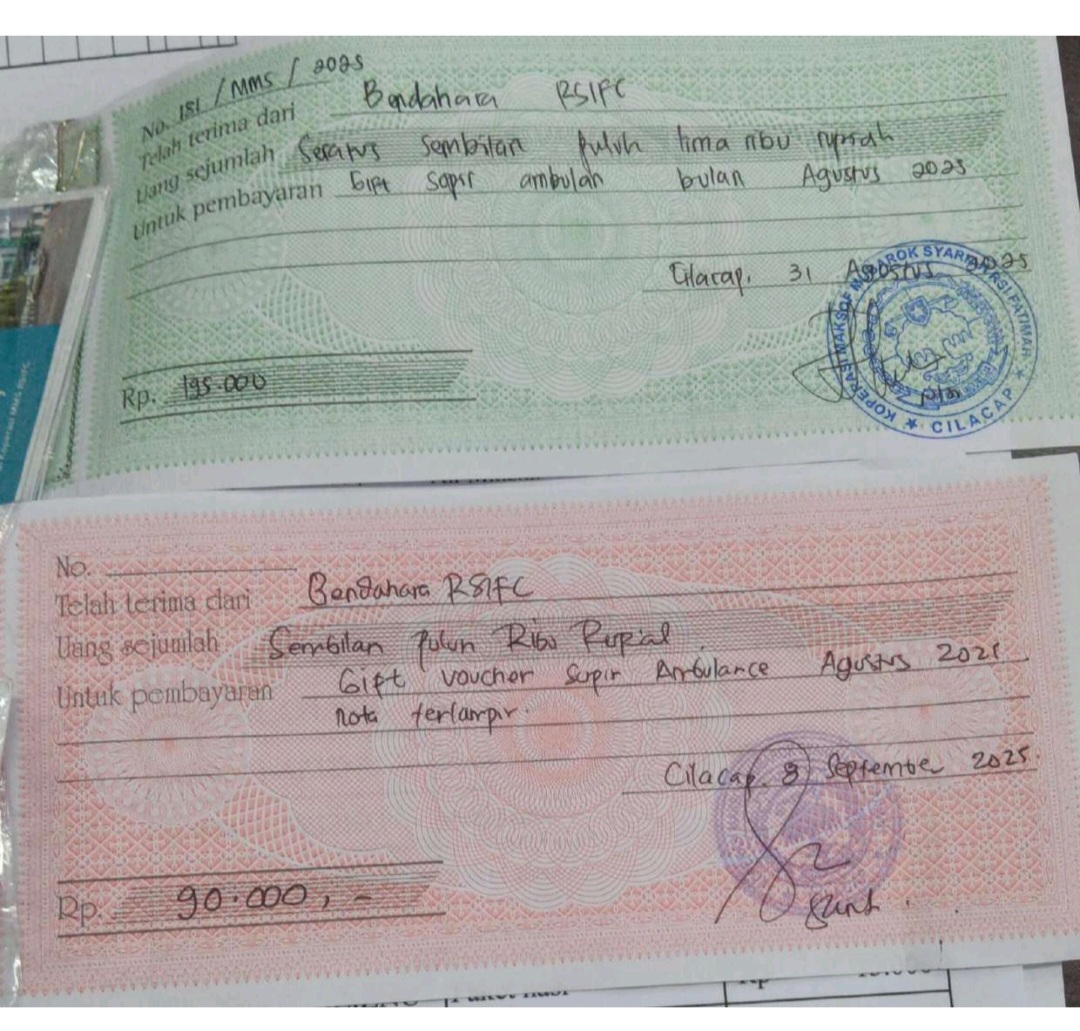 No. 151 / MMS / 2025
Telah terima dari Bendahara RSIFC
Uang sejumlah Seratus Sembilan Puluh lima ribu rupiah
Untuk pembayaran Gift sopir ambulan bulan Agustus 2025
Cilacap, 31 Agustus 2025
Rp. 195.000
KOPERASI MAKSOF MUBAROK SYARIAH RSI FATIMAH
★ CILACAP ★
No.
Telah terima dari Bendahara RSIFC
Uang sejumlah Sembilan Puluh Ribu Rupiah
Untuk pembayaran Gift voucher Supir Ambulance Agustus 2025
nota terlampir.
Cilacap, 8 September 2025.
Rp. 90.000,-